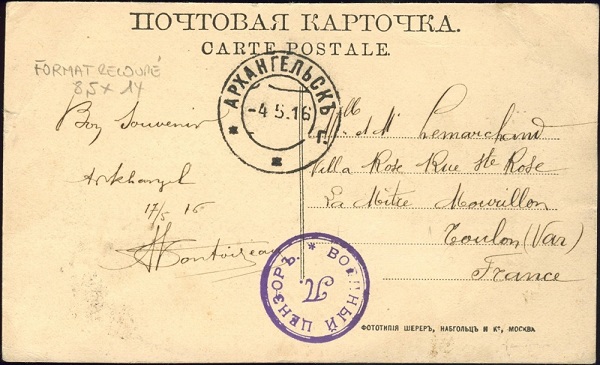 ПОЧТОВАЯ КАРТОЧКА.
CARTE POSTALE.
FORMAT
8,5 x 14
АРХАНГЕЛЬСКЪ Г.
-4.5.16
Bon Souvenir
Arkhangel
17/5 16
Lemarchand
Villa Rose Rue Ste Rose
La Mitre Mourillon
Toulon (Var)
France
ВОЕННЫЙ ЦЕНЗОРЪ.
П.
ФОТОТИПІЯ ШЕРЕРЪ, НАБГОЛЬЦЪ И Кº, МОСКВА.